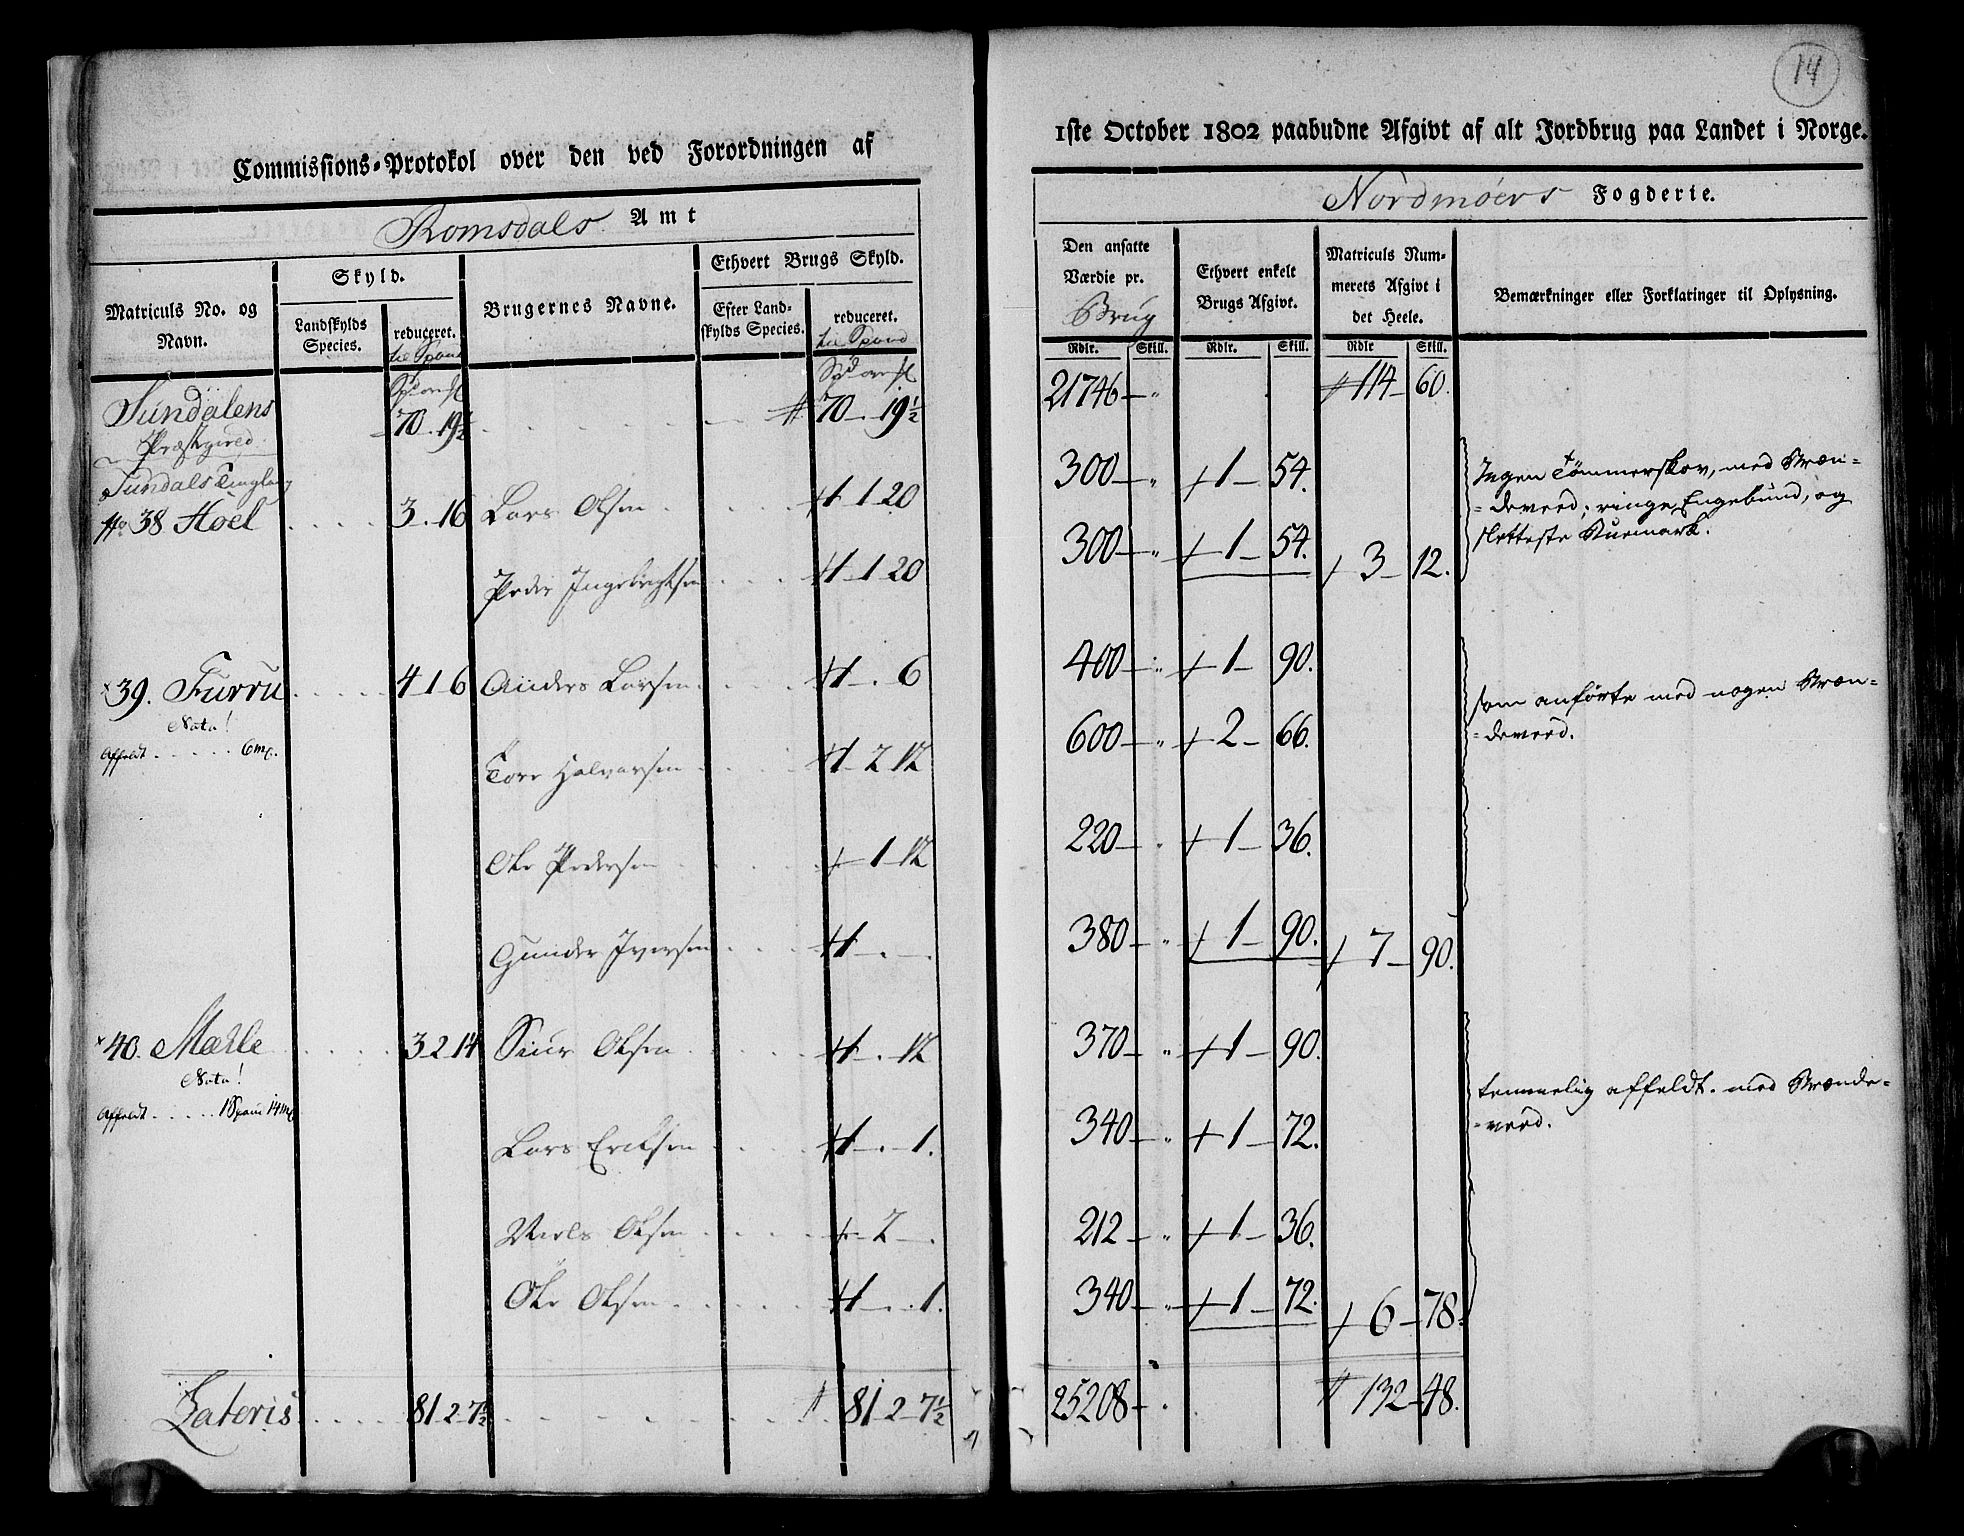 14
Commissions-Protokol over den ved Forordningen af
1ste October 1802 paabudne Afgivt af alt Jordbrug paa Landet i Norge.
Romsdals Amt
Nordmöers Fogderie.
Matriculs No. og Navn.
Skyld.
Landskylds Species.
reduceret. til Spand
Brugernes Navne.
Ethvert Brugs Skyld.
Efter Landskylds Species.
reduceret. til Spand
Den ansatte Værdie pr. Brug
Ethvert enkelt Brugs Afgivt.
Matriculs Nummerets Afgivt i det Heele.
Bemærkninger eller Forklaringer til Oplysning.
Rdlr. Skill. Rdlr. Skill. Rdlr Skill.
Sundalens 70. 19½ 70. 19½ 21746 114 60.
Præstegield
Sundals Tinglaug
No 38 Hoel 3. 16 Lars Olsen 1 1 20 300 1 54.
Ingen Tømmerskov, med Bræn=
=deved; ringe Engebund, og
sletteste Buemark.
Peder Ingebrigtsen 1 1 20 300 1 54. 3 12.
39. Furru 4 1 6 Anders Larsen 1 . 6 400 1 90.
som anførte med nogen Bræn=
=deved.
Nota!
Affeldt 6 mk.
Tore Halvorsen 1 2 12 600 2 66.
Ole Pedersen 1 12 220 1 36.
Gunder Iversen 1 380 1 90. 7 90.
40. Mæhle 3 2 14 Siur Olsen 1 . 12 370 1 90.
temmelig affeldt. med Brænde=
=veed.
Nota!
Affeldt 1 Span 14 mk
Lars Eriksen 1 . 1. 340 1 72.
Niels Olsen 2 212 1 36.
Ole Olsen 1 . 1. 340 1 72. 6 78.
Lateris 81 2 7½ 81 2 7½ 25208 132 48.